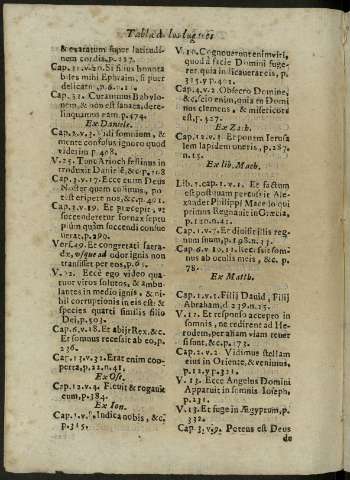 Tabla de los lugares
& exaratum super latitudi-
nem cordis. p.227.
Cap. 31. v.20. Si filius honora
biles mihi Ephraim, si puer
delicatus, p.6. n.11.
Cap. 51. Curauimus Babylo-
nem, & non est sanata, dere-
linquamus eam. p.474.
Ex Daniele.
Cap. 2. v.3. Vidi somnium, &
mente confusus ignoro quod
viderim p.408.
V.25. Tunc Arioch festinus in
troduxit Danielē, &c. p.108
Cap. 3. v.17. Ecce enim Deus
Noster quem colimus, po-
test eripere nos, &c. p.401.
Cap. 3. v.19. Et præcepit, vt
succenderetur fornax septu
plum quàm succendi consue
uerat, p.290.
Vers. 49. Et congregati satra-
dor ignis non
transisset per eos, p.6
V.92. Ecce ego video qua-
tuor viros solutos, & ambu
lantes in medio ignis, & ni-
hil corruptionis in eis est: &
species quarti similis filio
Dei, p.503.
Cap. 6. v.18. Et abijt Rex, &c.
Et somnus recessit ab eo, p.
236.
Cap. 13. v.32. Erat enim coo-
perta, p.22. n.41.
Ex Ose.
Cap. 12. v.4. Fleuit & rogauit
eum, p.384.
Ex Ion.
Cap. 1. v. Indica nobis, &c.
p.315.
V.10. Cognouerunt enim viri,
quod à facie Domini fuge-
ret, quia indicauerat eis, p.
315. y p.401.
Cap. 4. v.2. Obsecro Domine,
&c. scio enim, quia tu Domi
nus clemens, & misericors
est, p.427.
Ex Zach.
Cap. 12. v.3. Et ponam Ierusa
lem lapidem oneris, p.287.
n.15.
Ex lib. Mach.
Lib. 1. cap. 1. v.1. Et factum
est postquam percussit Ale-
xander Philippi Macedo qui
primus Regnauit in Græcia,
p.120. n.42.
Cap. 1. v.7. Et diuisit illis reg-
num suum, p.198. n.33.
Cap. 6. v.10. Recessit som-
nus ab oculis meis, &c. p.
78.
Ex Matth.
Cap. 1. v.1. Filij Dauid, Filij
Abraham, p.239. n.25.
V.12. Et responso accepto in
somnis, ne redirent ad He-
rodem, per aliam viam reuer
si sunt, &c. p.173.
Cap. 2. v.2. Vidimus stellam
eius in Oriente, & veniuus,
p.12. y p.321.
V.13. Ecce Angelus Domini
Apparuit in somnis Ioseph,
p.231.
V.13. Et fuge in Ægyptum, p.
332.
Cap. 3. v.9. Potens est Deus
de